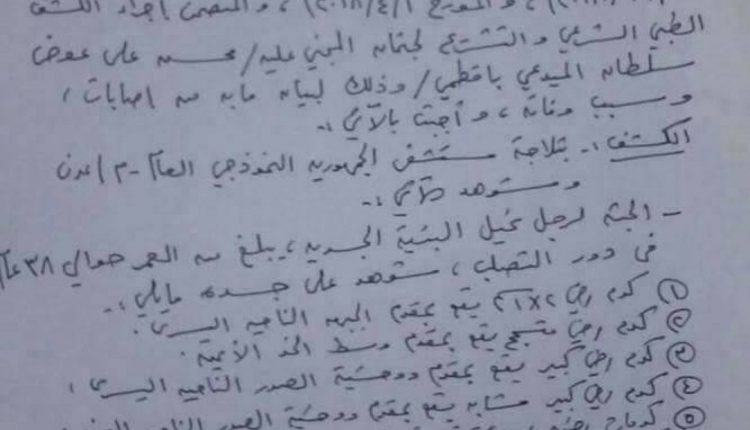 والمؤرخ ١/٤/٢٠١٨) ، والمتضمن إجراء الكشف
الطبي الشرعي والتشريح لجثمان المجني عليه/ محسن علي عوض
سلطان الميدعي باقطمي/ وذلك لبيان مابه من اصابات ،
وسبب وفاته ، وأجبت بالآتي :-
الكشف :- بثلاجة مستشفى الجمهورية النموذجي العام - م/عدن
وستوهد كآتي :-
- الجثه لرجل نحيل البنية الجسديه ، يبلغ من العمر حوالي ٣٨ عاً
في دور التصلب ، شوهد على جسده مايلي :-
① كدم رضي ٢x٢ يقع بمقدم الجبهه الناحيه اليسرى .
② كدم رضي متسحج يقع بمقدم وسط الخد الأيمن .
③ كدم رضي كبير يقع بمقدم ووحشية الصدر الناحيه اليسرى ،
④ كدم رضي كبير مشابه يقع بمقدم ووحشية الصدر الناحيه
⑤